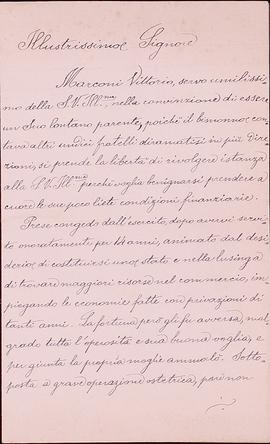 Illustrissimo Signore
Marconi Vittorio, servo umilissi-
mo della S. V. Ill.ma, nella convinzione di essere
un Suo lontano parente, poiché il bisnonno con-
tava altri undici fratelli diramatisi in più Dire-
zioni, si prende la libertà di rivolgere istanza
alla S. V. Ill.ma perché voglia benignarsi prendere a
cuore le sue poco liete condizioni finanziarie.
Prese congedo dall'esercito, dopo avervi servi-
to onoratamente per 14 anni, animato dal desi-
derio di costituirsi uno stato e nella lusinga
di trovare maggiori risorse nel commercio, im-
piegando le economie fatte con privazioni di
tanti anni. La fortuna però gli fu avversa, mal-
grado tutta l'operosità e sua buona voglia, e
per giunta la propria moglie ammalò. Sotto-
posta a grave operazione ostetrica, poiè non